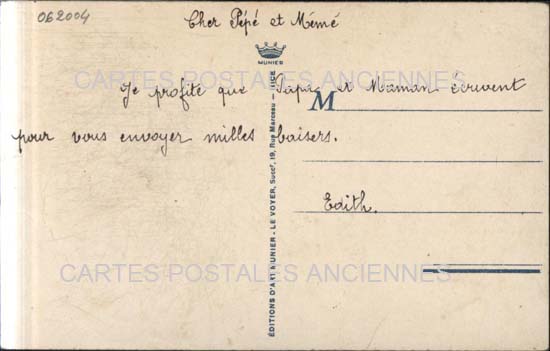 062004
Cher Pépé et Mémé
MUNIER
CARTES POSTALES ANCIENNES
Je profite que Papa et Maman écrivent
M
pour vous envoyer milles baisers.
Edith.
CARTES POSTALES ANCIENNES
ÉDITIONS D'ART MUNIER - LE VOYER, Succr, 19, Rue Marceau - NICE